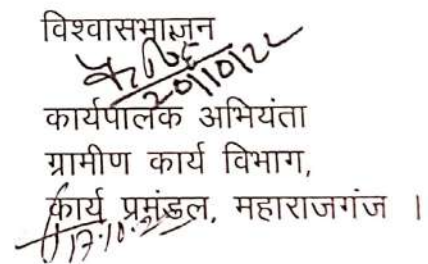 विश्वासभाजन
20/10/22
कार्यपालक अभियंता
ग्रामीण कार्य विभाग,
कार्य प्रमंडल, महाराजगंज ।